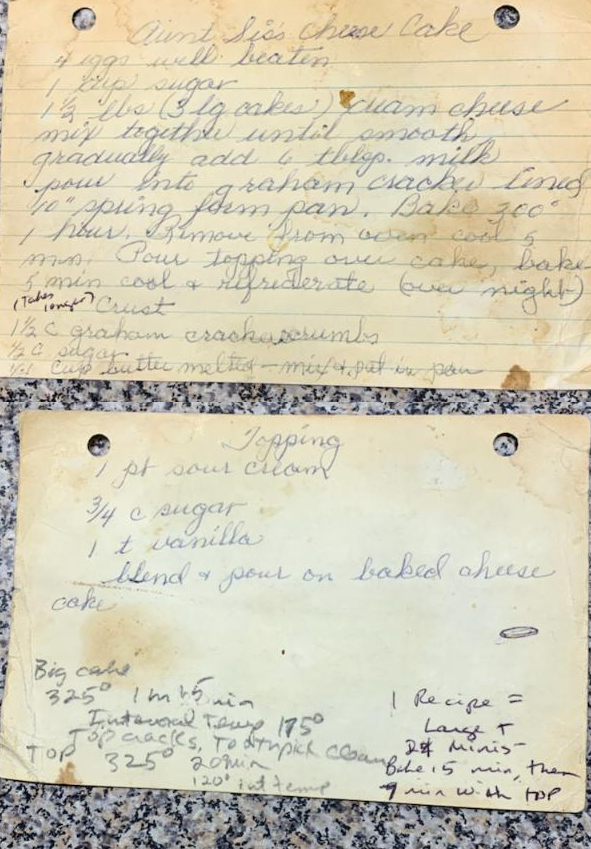 Aunt Sis's Cheese Cake
4 eggs well beaten
1 cup sugar
1 1/2 lbs (3 lg cakes) cream cheese
mix together until smooth
gradually add 6 tblsp. milk
pour into graham cracker lined
10" spring form pan. Bake 300°
1 hour. Remove from oven cool 5
min. Pour topping over cake, bake
5 min cool & refriderate (over night)
(Takes longer) Crust
1 1/2 C graham cracker crumbs
1/2 C sugar
cup butter melted - mix & put in pan
Topping
1 pt sour cream
3/4 c sugar
1 t vanilla
blend & pour on baked cheese
cake
Big cake
325° 1 hr 15 min
Internal Temp 175°
Top cracks, Toothpick clean
TOP 325° 20 min
120° int temp
1 Recipe =
Large +
Minis -
Bake 15 min, then
9 min with top